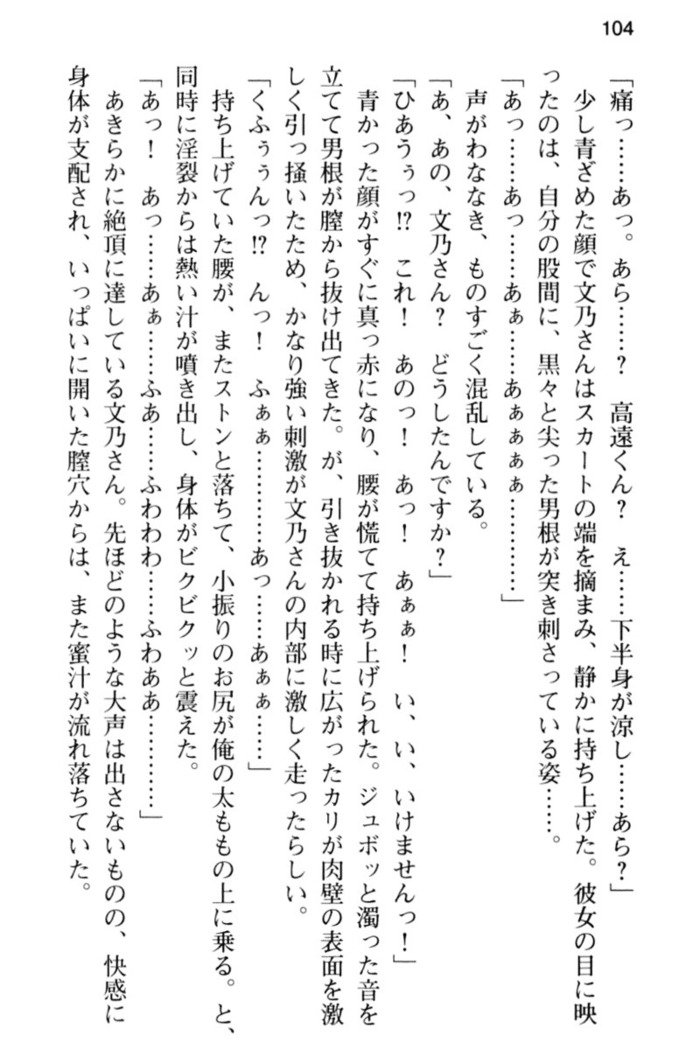 104
「痛っ……あっ。あら……？　高遠くん？　え……下半身が涼し……あら？」
　少し青ざめた顔で文乃さんはスカートの端を摘まみ、静かに持ち上げた。彼女の目に映
ったのは、自分の股間に、黒々と尖った男根が突き刺さっている姿……。
「あっ……あっ……あぁ……あぁぁぁぁ…………」
　声がわななき、ものすごく混乱している。
「あ、あの、文乃さん？　どうしたんですか？」
「ひあうぅっ!?　これ！　あのっ！　あっ！　あぁぁ！　い、い、いけませんっ！」
　青かった顔がすぐに真っ赤になり、腰が慌てて持ち上げられた。ジュボッと濁った音を
立てて男根が膣から抜け出てきた。が、引き抜かれる時に広がったカリが肉壁の表面を激
しく引っ掻いたため、かなり強い刺激が文乃さんの内部に激しく走ったらしい。
「くふぅぅんっ!?　んっ！　ふぁぁ…………あっ……あぁぁ……」
　持ち上げていた腰が、またストンと落ちて、小振りのお尻が俺の太ももの上に乗る。と、
同時に淫裂からは熱い汁が噴き出し、身体がビクビクッと震えた。
「あっ！　あっ……あぁ……ふあ……ふわわわ……ふわああ…………」
　あきらかに絶頂に達している文乃さん。先ほどのような大声は出さないものの、快感に
身体が支配され、いっぱいに開いた膣穴からは、また蜜汁が流れ落ちていた。